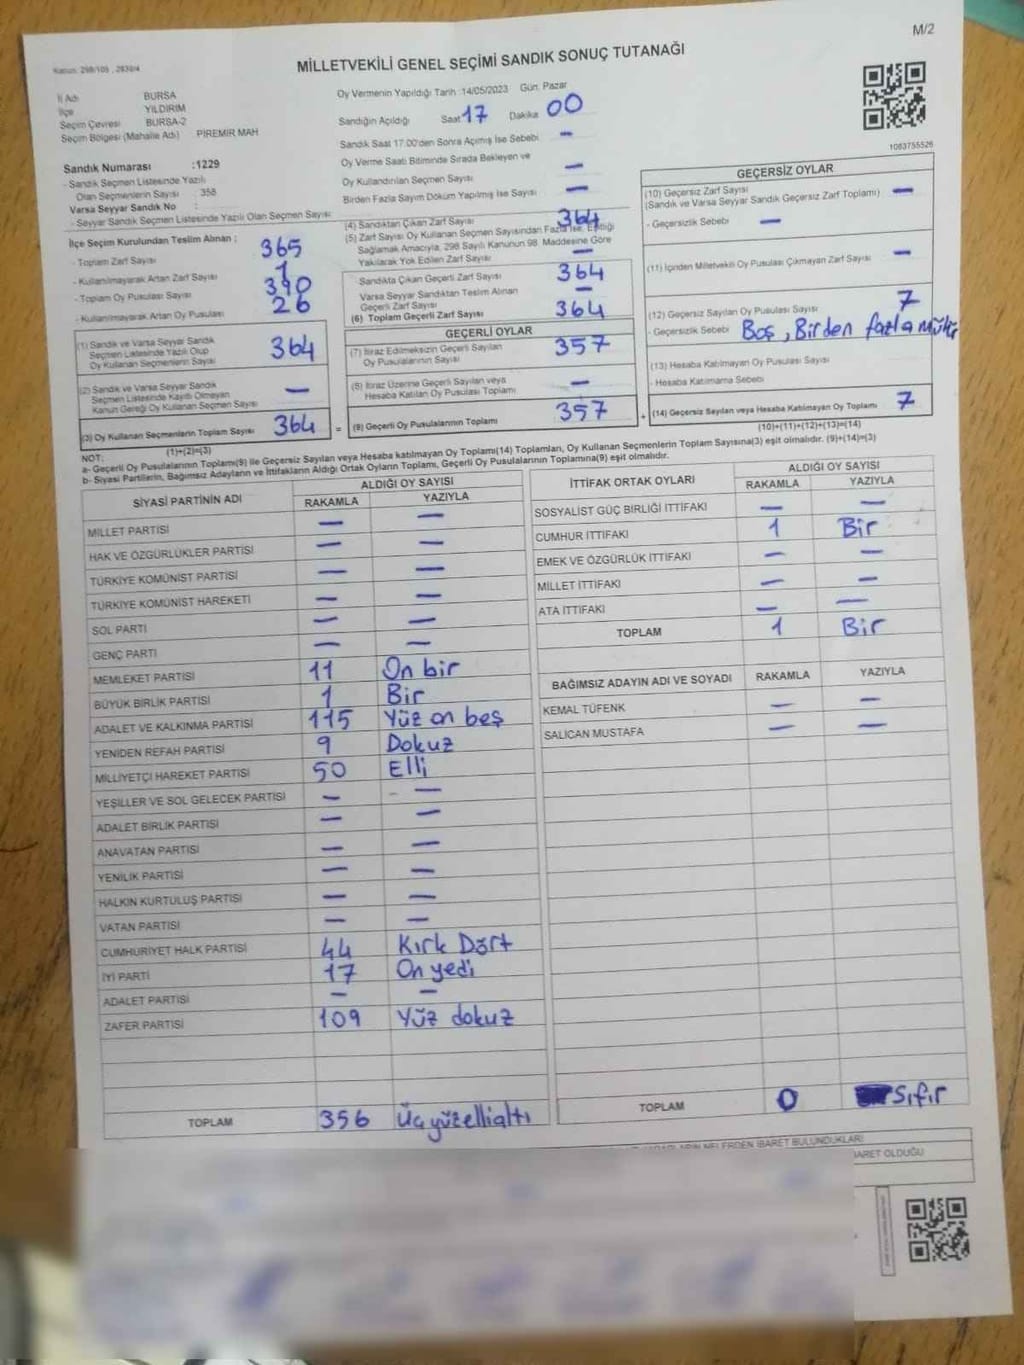 M/2
Kanun: 298/105 , 2839/4
MİLLETVEKİLİ GENEL SEÇİMİ SANDIK SONUÇ TUTANAĞI
İl Adı BURSA
İlçe YILDIRIM
Seçim Çevresi BURSA-2
Seçim Bölgesi (Mahalle Adı) PIREMIR MAH
Sandık Numarası :1229
- Sandık Seçmen Listesinde Yazılı
Olan Seçmenlerin Sayısı : 358
Varsa Seyyar Sandık No :
- Seyyar Sandık Seçmen Listesinde Yazılı Olan Seçmen Sayısı:
Oy Vermenin Yapıldığı Tarih :14/05/2023 Gün: Pazar
Sandığın Açıldığı Saat 17 Dakika 00
Sandık Saat 17.00'den Sonra Açılmış İse Sebebi —
Oy Verme Saati Bitiminde Sırada Bekleyen ve
Oy Kullandırılan Seçmen Sayısı —
Birden Fazla Sayım Döküm Yapılmış İse Sayısı —
1083755526
İlçe Seçim Kurulundan Teslim Alınan :
- Toplam Zarf Sayısı 365
- Kullanılmayarak Artan Zarf Sayısı 1
- Toplam Oy Pusulası Sayısı 390
- Kullanılmayarak Artan Oy Pusulası 26
(1) Sandık ve Varsa Seyyar Sandık
Seçmen Listesinde Yazılı Olup
Oy Kullanan Seçmenlerin Sayısı 364
(2) Sandık ve Varsa Seyyar Sandık
Seçmen Listesinde Kayıtlı Olmayan
Kanun Gereği Oy Kullanan Seçmen Sayısı —
(3) Oy Kullanan Seçmenlerin Toplam Sayısı 364
(1)+(2)=(3)
(4) Sandıktan Çıkan Zarf Sayısı 364
(5) Zarf Sayısı Oy Kullanan Seçmen Sayısından Fazla ise, Eşitliği
Sağlamak Amacıyla, 298 Sayılı Kanunun 98. Maddesine Göre
Yakılarak Yok Edilen Zarf Sayısı —
- Sandıkta Çıkan Geçerli Zarf Sayısı 364
Varsa Seyyar Sandıktan Teslim Alınan
Geçerli Zarf Sayısı —
(6) Toplam Geçerli Zarf Sayısı 364
GEÇERLİ OYLAR
(7) İtiraz Edilmeksizin Geçerli Sayılan
Oy Pusulalarının Sayısı 357
(8) İtiraz Üzerine Geçerli Sayılan veya
Hesaba Katılan Oy Pusulası Toplamı —
= (9) Geçerli Oy Pusulalarının Toplamı 357
GEÇERSİZ OYLAR
(10) Geçersiz Zarf Sayısı
(Sandık ve Varsa Seyyar Sandık Geçersiz Zarf Toplamı) —
- Geçersizlik Sebebi —
(11) İçinden Milletvekili Oy Pusulası Çıkmayan Zarf Sayısı —
(12) Geçersiz Sayılan Oy Pusulası Sayısı 7
- Geçersizlik Sebebi Boş, Birden fazla Mühür
(13) Hesaba Katılmayan Oy Pusulası Sayısı
- Hesaba Katılmama Sebebi
+ (14) Geçersiz Sayılan veya Hesaba Katılmayan Oy Toplamı 7
(10)+(11)+(12)+(13)=(14)
NOT:
a- Geçerli Oy Pusulalarının Toplamı(9) ile Geçersiz Sayılan veya Hesaba katılmayan Oy Toplamı(14) Toplamları, Oy Kullanan Seçmenlerin Toplam Sayısına(3) eşit olmalıdır. (9)+(14)=(3)
b- Siyasi Partilerin, Bağımsız Adayların ve İttifakların Aldığı Ortak Oyların Toplamı, Geçerli Oy Pusulalarının Toplamına(9) eşit olmalıdır.
SİYASİ PARTİNİN ADI ALDIĞI OY SAYISI
RAKAMLA YAZIYLA
MİLLET PARTİSİ — —
HAK VE ÖZGÜRLÜKLER PARTİSİ — —
TÜRKİYE KOMÜNİST PARTİSİ — —
TÜRKİYE KOMÜNİST HAREKETİ — —
SOL PARTİ — —
GENÇ PARTİ — —
MEMLEKET PARTİSİ 11 On bir
BÜYÜK BİRLİK PARTİSİ 1 Bir
ADALET VE KALKINMA PARTİSİ 115 Yüz on beş
YENİDEN REFAH PARTİSİ 9 Dokuz
MİLLİYETÇİ HAREKET PARTİSİ 50 Elli
YEŞİLLER VE SOL GELECEK PARTİSİ — —
ADALET BİRLİK PARTİSİ — —
ANAVATAN PARTİSİ — —
YENİLİK PARTİSİ — —
HALKIN KURTULUŞ PARTİSİ — —
VATAN PARTİSİ — —
CUMHURİYET HALK PARTİSİ 44 Kırk Dört
İYİ PARTİ 17 On yedi
ADALET PARTİSİ — —
ZAFER PARTİSİ 109 Yüz dokuz
TOPLAM 356 Üçyüzellialtı
İTTİFAK ORTAK OYLARI ALDIĞI OY SAYISI
RAKAMLA YAZIYLA
SOSYALİST GÜÇ BİRLİĞİ İTTİFAKI — —
CUMHUR İTTİFAKI 1 Bir
EMEK VE ÖZGÜRLÜK İTTİFAKI — —
MİLLET İTTİFAKI — —
ATA İTTİFAKI — —
TOPLAM 1 Bir
BAĞIMSIZ ADAYIN ADI VE SOYADI RAKAMLA YAZIYLA
KEMAL TÜFENK — —
SALİCAN MUSTAFA — —
TOPLAM 0 Sıfır
NELERDEN İBARET BULUNDUKLARI
İBARET OLDUĞU